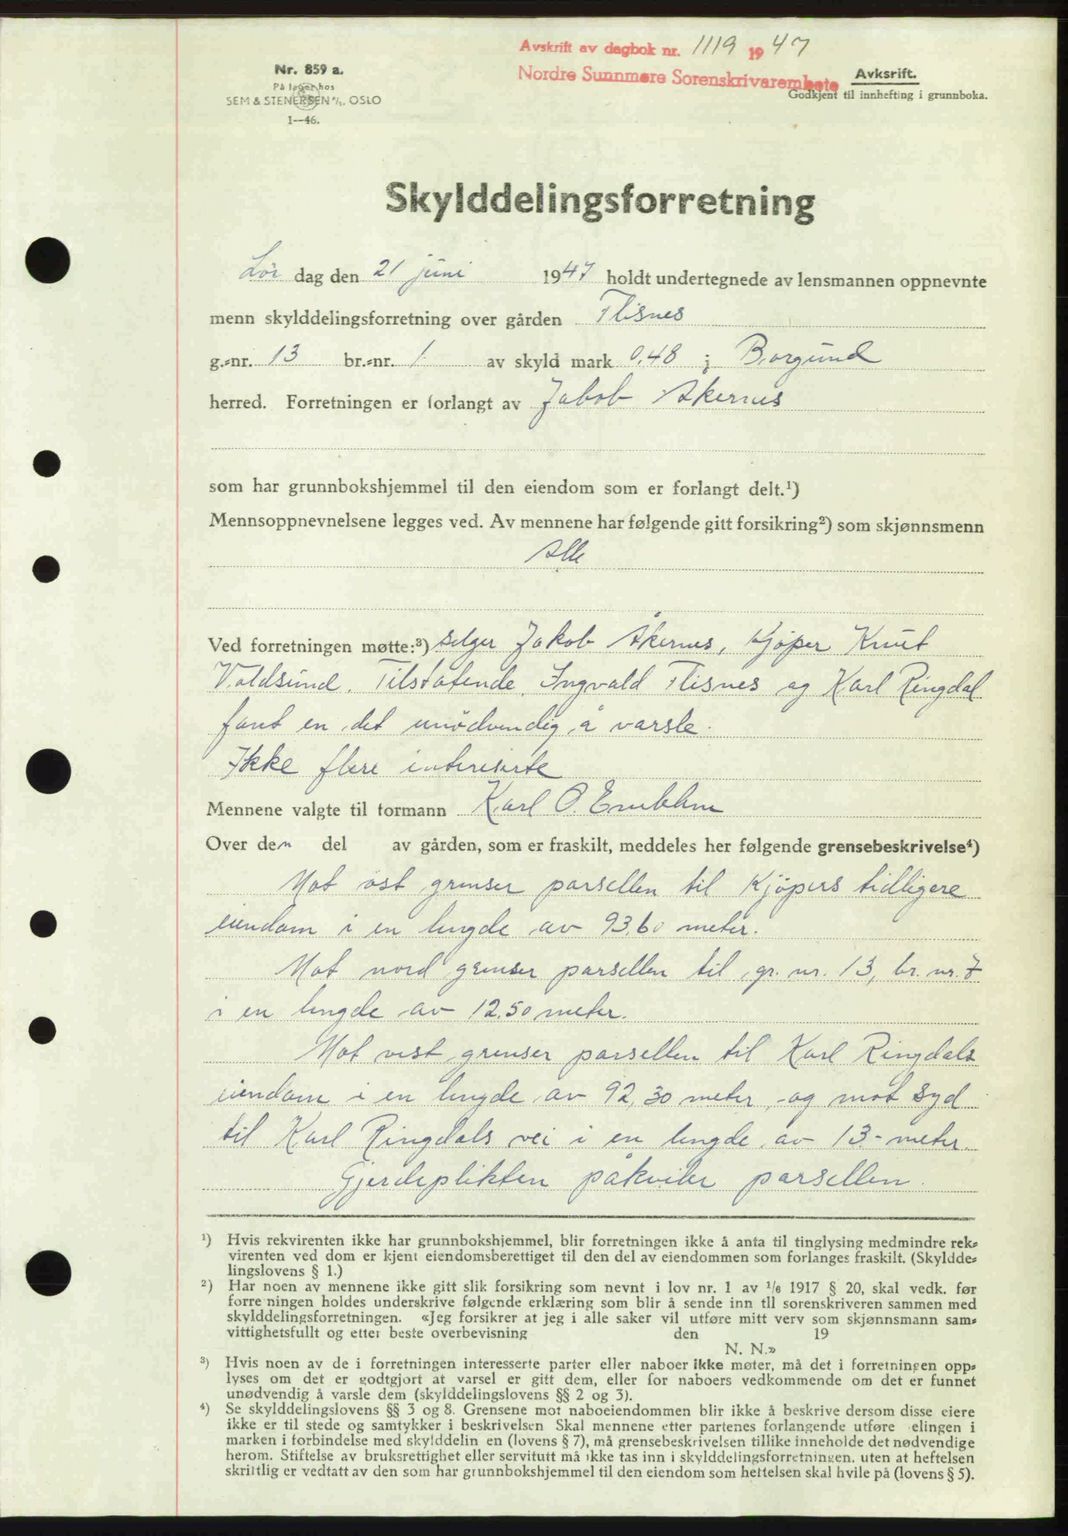 Avskrift av dagbok nr. 1119 1947
Nordre Sunnmøre Sorenskrivarembete
Avskrift.
Godkjent til innhefting i grunnboka.
Nr. 859 a.
På lager hos
SEM & STENERSEN A/S. OSLO
1—46.
Skylddelingsforretning
Lör dag den 21 juni 1947 holdt undertegnede av lensmannen oppnevnte
menn skylddelingsforretning over gården Flisnes
g.=nr. 13 br.=nr. 1. av skyld mark 0,48 i Borgund
herred. Forretningen er forlangt av Jakob Åkernes
som har grunnbokshjemmel til den eiendom som er forlangt delt.¹)
Mennsoppnevnelsene legges ved. Av mennene har følgende gitt forsikring²) som skjønnsmenn
Alle
Ved forretningen møtte:³) Selger Jakob Åkernes, Kjöper Knut
Voldsund. Tilstötende Ingvald Flisnes og Karl Ringdal
fant en det unödvendig å varsle.
Ikke flere interesirte
Mennene valgte til formann Karl O. Emblem
Over den del av gården, som er fraskilt, meddeles her følgende grensebeskrivelse⁴)
Mot öst grenser parsellen til Kjöpers tidligere
eiendom i en lengde av 93,60 meter.
Mot nord grenser parsellen til gr. nr. 13, br. nr. 7
i en lengde av 12.50 meter.
Mot vest grenser parsellen til Karl Ringdals
eiendom i en lengde av 92,30 meter, og mot syd
til Karl Ringdals vei i en lengde av 13- meter.
Gjerdeplikten påkviler parsellen.
¹) Hvis rekvirenten ikke har grunnbokshjemmel, blir forretningen ikke å anta til tinglysing medmindre rek=
virenten ved dom er kjent eiendomsberettiget til den del av eiendommen som forlanges fraskilt. (Skyldde=
lingslovens § 1.)
²) Har noen av mennene ikke gitt slik forsikring som nevnt i lov nr. 1 av 1/6 1917 § 20, skal vedk. før
forre ningen holdes underskrive følgende erklæring som blir å sende inn til sorenskriveren sammen med
skylddelingsforretningen. «Jeg forsikrer at jeg i alle saker vil utføre mitt verv som skjønnsmann sam=
vittighetsfullt og etter beste overbevisning den 19
N. N.»
³) Hvis noen av de i forretningen interesserte parter eller naboer ikke møter, må det i forretningen opp=
lyses om det er godtgjort at varsel er gitt dem, eller for naboers vedkommende om det er funnet
unødvendig å varsle dem (skylddelingslovens §§ 2 og 3).
⁴) Se skylddelingslovens §§ 3 og 8. Grensene mot naboeiendommen blir ikke å beskrive dersom disse eiere
ikke er til stede og samtykker i beskrivelsen Skal mennene etter partenes forlangende utføre elingen i
marken i forbindelse med skylddelin en (lovens § 7), må grensebeskrivelsen tillike inneholde det nødvendige
herom. Stiftelse av bruksrettighet eller servitutt må ikke tas inn i skylddelingsforretningen. uten at heftelsen
skriftlig er vedtatt av den som har grunnbokshjemmel til den eiendom som heftelsen skal hvile på (lovens § 5).